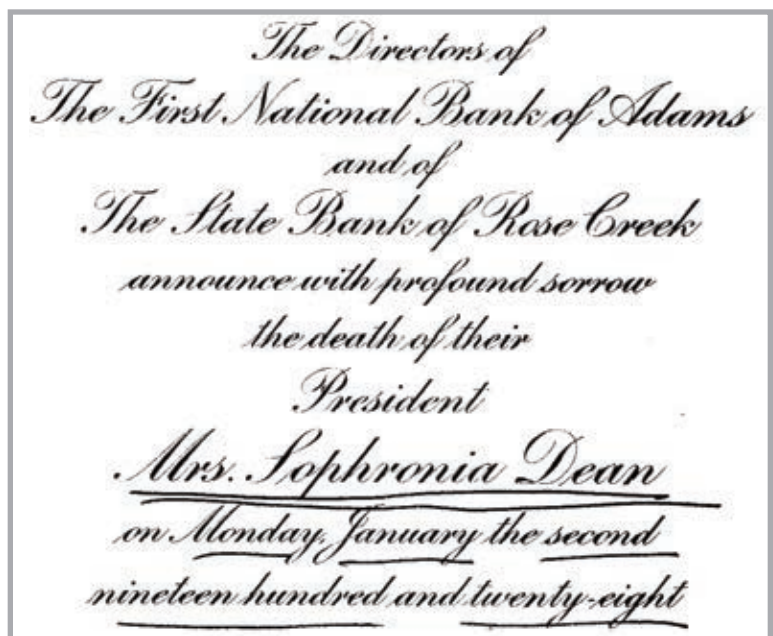 The Directors of
The First National Bank of Adams
and of
The State Bank of Rose Creek
announce with profound sorrow
the death of their
President
Mrs. Sophronia Dean
on Monday, January the second
nineteen hundred and twenty-eight